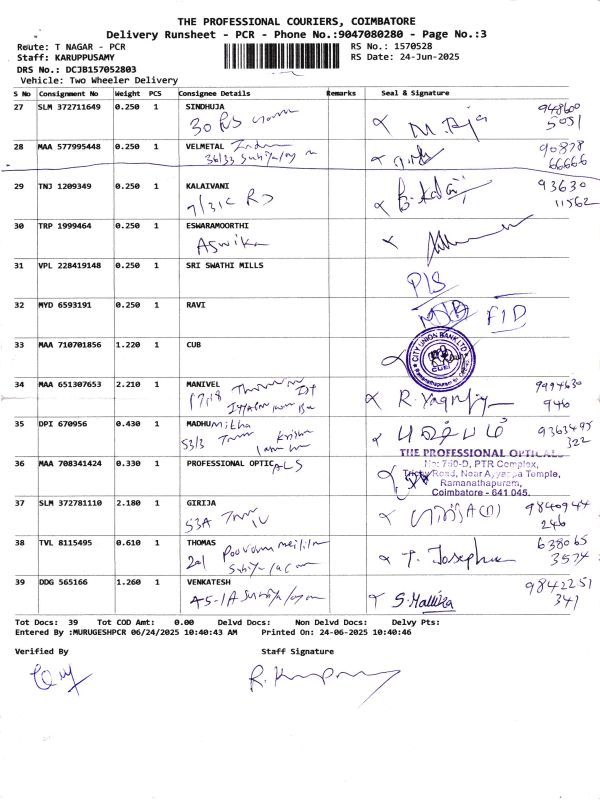 THE PROFESSIONAL COURIERS, COIMBATORE
Delivery Runsheet - PCR - Phone No.:9047080280 - Page No.:3
Route: T NAGAR - PCR RS No.: 1570528
Staff: KARUPPUSAMY RS Date: 24-Jun-2025
DRS No.: DCJB157052803
Vehicle: Two Wheeler Delivery
S No Consignment No Weight PCS Consignee Details Remarks Seal & Signature
27 SLM 372711649 0.250 1 SINDHUJA 948600
30 RS M. Raja 5051
28 MAA 577995448 0.250 1 VELMETAL 90878
36/33 66666
29 TNJ 1209349 0.250 1 KALAIVANI 93630
7/31C RD 11562
30 TRP 1999464 0.250 1 ESWARAMOORTHI
Aswika
31 VPL 228419148 0.250 1 SRI SWATHI MILLS
P/S
32 MYD 6593191 0.250 1 RAVI F1D
33 MAA 710701856 1.220 1 CUB
CITY UNION BANK LTD
34 MAA 651307653 2.210 1 MANIVEL 9994630
17/18 R. 946
35 DPI 670956 0.430 1 MADHUmitha 9363495
53/3 Krishna 322
THE PROFESSIONAL OPTICALS
36 MAA 708341424 0.330 1 PROFESSIONAL OPTICALS
No: 760-D, PTR Complex,
Trichy Road, Near Ayyappa Temple,
Ramanathapuram,
Coimbatore - 641 045.
37 SLM 372781110 2.180 1 GIRIJA 9840944
53A 246
38 TVL 8115495 0.610 1 THOMAS 638065
201 T. Josephine 3574
39 DDG 565166 1.260 1 VENKATESH 9842251
A5-1A S. Mallika 341
Tot Docs: 39 Tot COD Amt: 0.00 Delvd Docs: Non Delvd Docs: Delvy Pts:
Entered By :MURUGESHPCR 06/24/2025 10:40:43 AM Printed On: 24-06-2025 10:40:46
Verified By Staff Signature